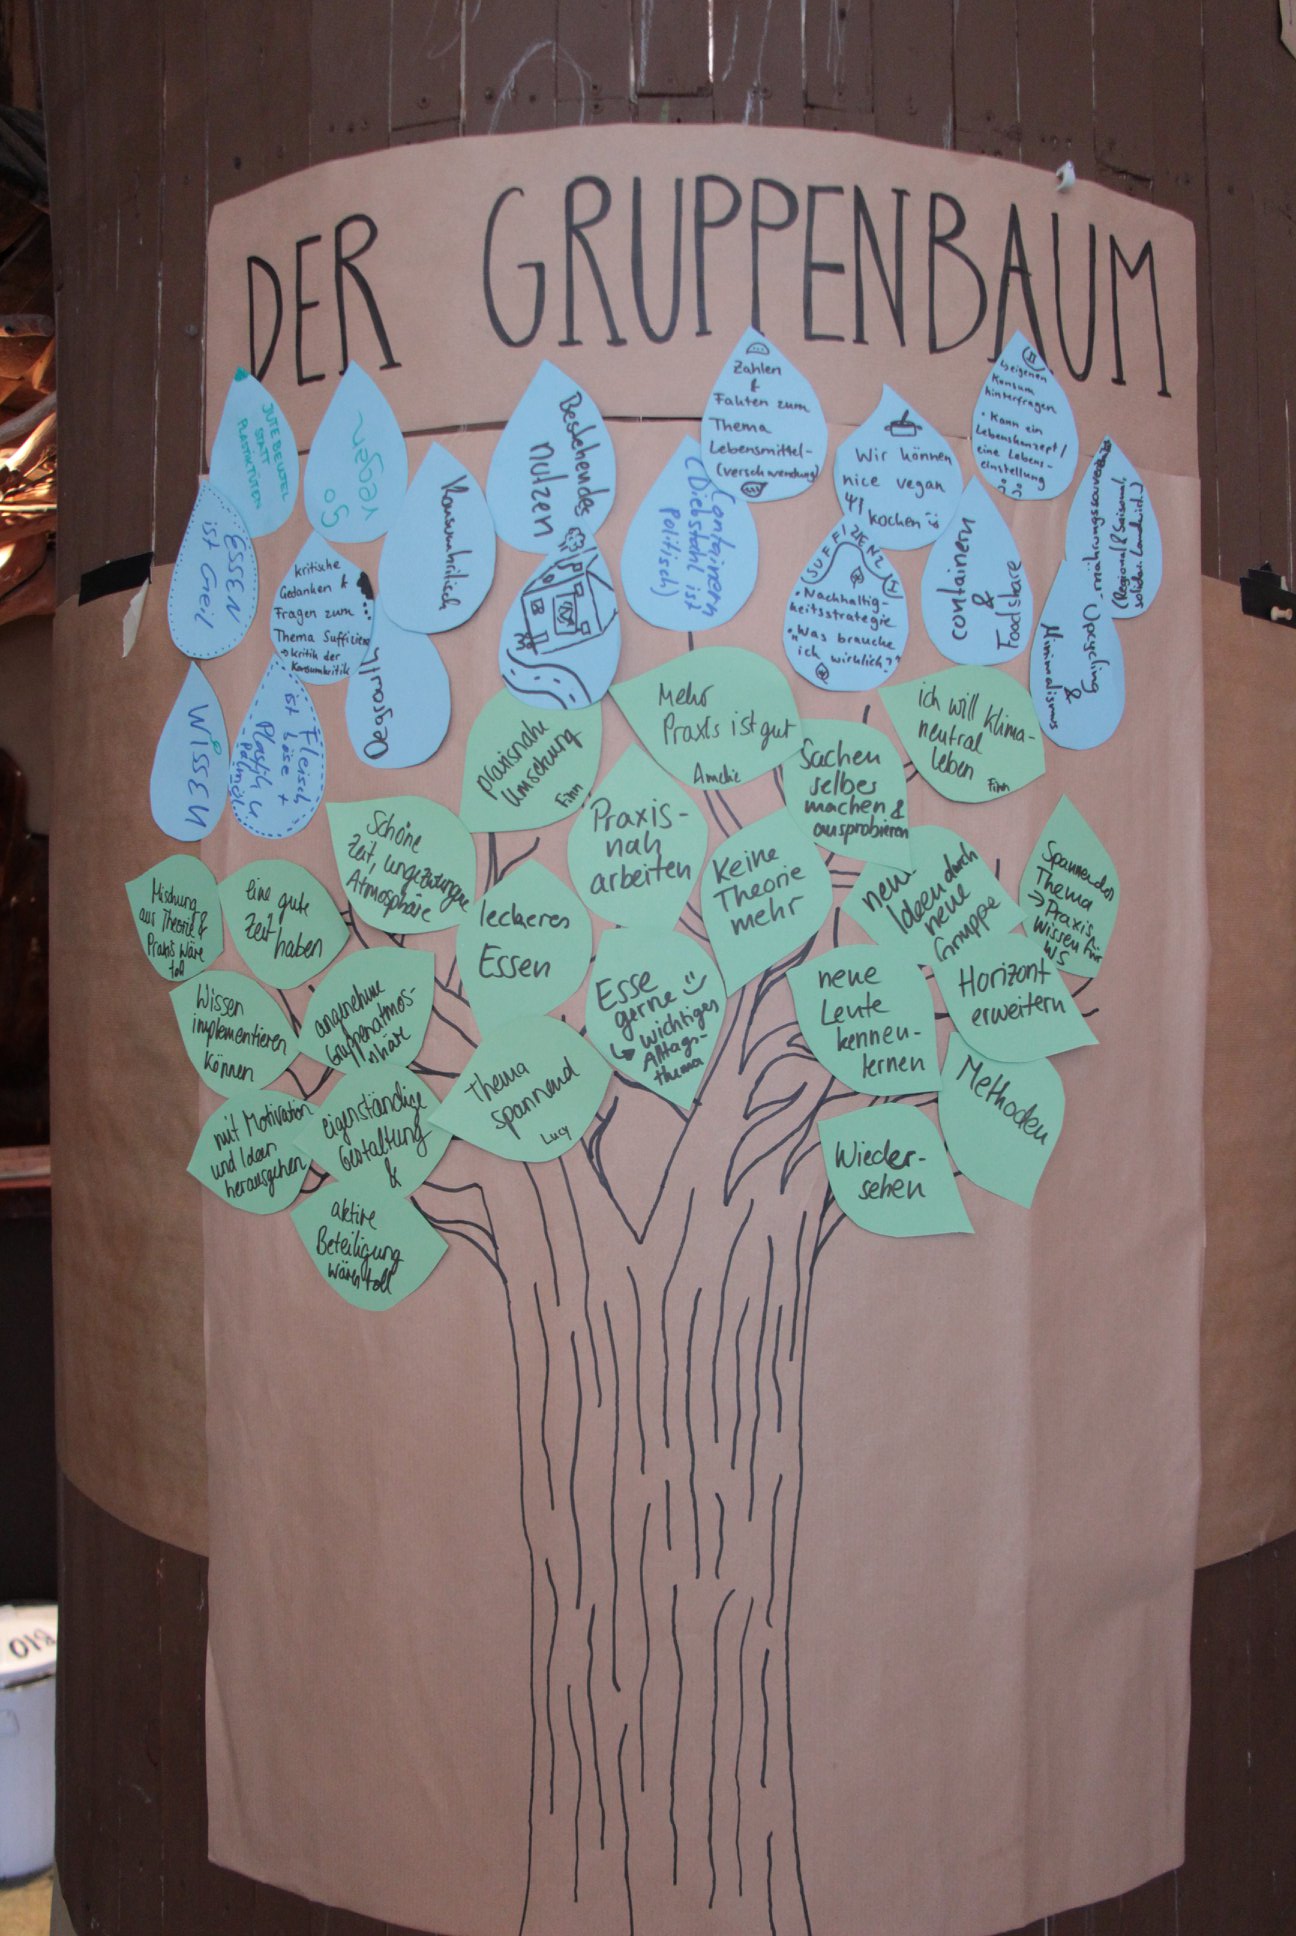 DER GRUPPENBAUM
JUTEBEUTEL
STATT
PLASTIKTÜTEN
go
vegan
Konsumkritisch
Bestehendes
nutzen
Zahlen
&
Fakten zum
Thema
Lebensmittel-
(verschwendung)
Wir können
nice vegan
kochen
↳ eigenen
Konsum
hinterfragen
• Kann ein
Lebenskonzept/
eine Lebens-
einstellung
(Regional & Saisonal,
ESSEN
ist Geil
kritische
Gedanken &
Fragen zum
Thema Suffizienz
→ Kritik der
Konsumkritik
Containern
(Diebstahl ist
politisch)
SUFFIZIENZ
• Nachhaltig-
keitsstrategie
• "Was brauche
ich wirklich?"
containern
&
Foodshare
Upcycling
&
Minimalismus
WISSEN
Fleisch
ist böse +
Plastik &
Palmöl
Degrowth
praxisnahe
Umsetzung
Finn
Mehr
Praxis ist gut
Amelie
Sachen
selber
machen &
ausprobieren
ich will klima-
neutral
leben
Finn
Schöne
Zeit, ungezwungene
Atmosphäre
Praxis-
nah
arbeiten
Keine
Theorie
mehr
neue
Ideen durch
neue
Gruppe
Spannendes
Thema
→ Praxis
Wissen für
WS
Mischung
aus Theorie &
Praxis wäre
toll
eine gute
Zeit
haben
leckeres
Essen
Esse
gerne
↳ wichtiges
Alltags-
thema
neue
Leute
kennen-
lernen
Horizont
erweitern
Wissen
implementieren
können
angenehme
Gruppenatmos-
phäre
Thema
spannend
Lucy
Methoden
mit Motivation
und Ideen
herausgehen
eigenständige
Gestaltung
&
aktive
Beteiligung
wären toll
Wieder-
sehen
BIO